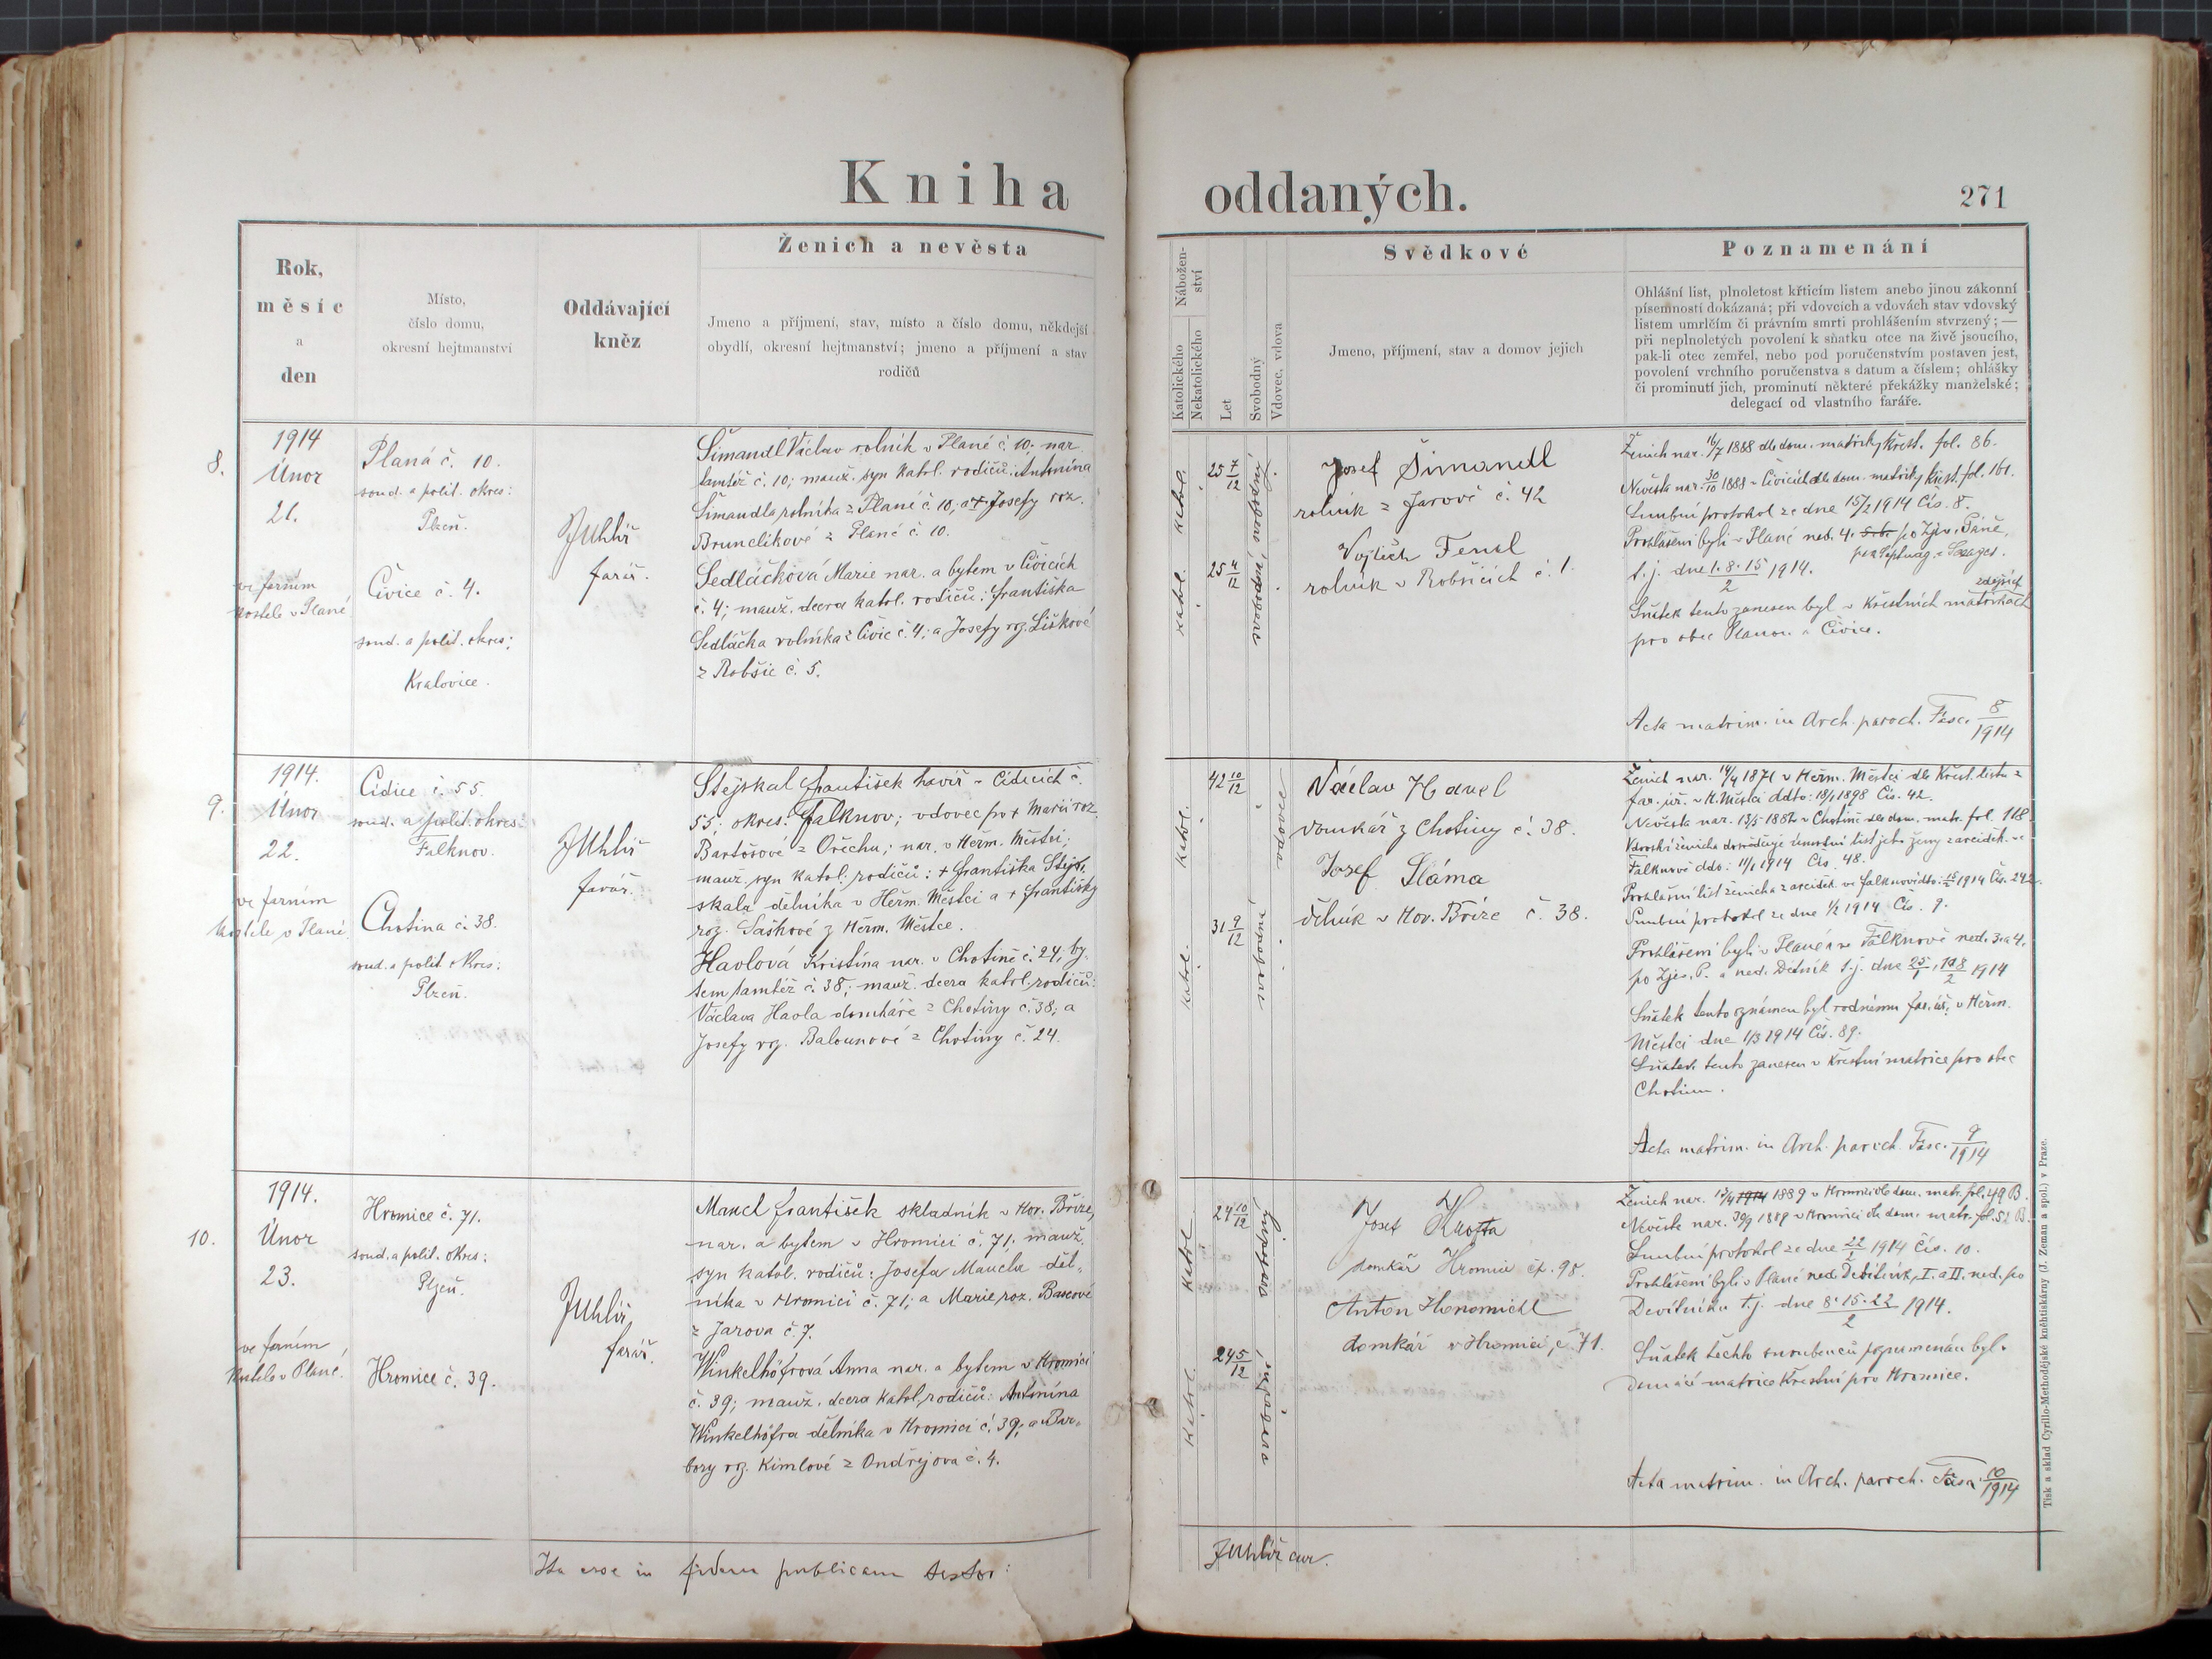 Kniha oddaných.
271
Rok,
měsíc
a
den
Místo,
číslo domu,
okresní hejtmanství
Oddávající
kněz
Ženich a nevěsta
Jmeno a příjmení, stav, místo a číslo domu, někdejší
obydlí, okresní hejtmanství; jmeno a příjmení a stav
rodičů
Nábožen-
ství
Katolického
Nekatolického
Let
Svobodný
Vdovec, vdova
Svědkové
Jmeno, příjmení, stav a domov jejich
Poznamenání
Ohlášní list, plnoletost křticím listem anebo jinou zákonní
písemností dokázaná; při vdovcích a vdovách stav vdovský
listem umrlčím či právním smrti prohlášením stvrzený; —
při neplnoletých povolení k sňatku otce na živě jsoucího,
pak-li otec zemřel, nebo pod poručenstvím postaven jest,
povolení vrchního poručenstva s datum a číslem; ohlášky
či prominutí jich, prominutí některé překážky manželské;
delegací od vlastního faráře.
8.
1914
Únor
21.
ve farním
kostele v Plané
Planá č. 10.
soud. a polit. okres:
Plzeň.
Čivice č. 4.
soud. a polit. okres:
Kralovice.
JUhlíř
farář.
Šimandl Václav rolník v Plané č. 10; nar.
tamtéž č. 10; manž. syn katol. rodičů: Antonína
Šimandla, rolníka z Plané č. 10; a + Josefy roz.
Brunclíkové z Plané č. 10.
Sedláčková Marie nar. a bytem v Čivicích
č. 4; manž. dcera katol. rodičů: Františka
Sedláčka rolníka z Čivic č. 4; a Josefy rz. Liškové
z Robšic č. 5.
katol.
katol.
25 7/12
25 4/12
svobodný
svobodná
Josef Šimandl
rolník z Jarově č. 42
Vojtěch Fencl
rolník v Robšicích č. 1.
Ženich nar. 16/7 1888 dle dom. matriky křest. fol. 86.
Nevěsta nar. 30/10 1888 v Čivicích dle dom. matriky křest. fol. 161.
Snubní protokol ze dne 15/2 1914 Čís. 8.
Prohlášeni byli v Plané ned. 4. po Zjev. Páně,
pak Septuag. a Sexages.
t. j. dne 1. 8. 15/2 1914.
Sňatek tento zanesen byl v křestních zdejších matrikách
pro obec Planou a Čivice.
Acta matrim. in Arch. paroch. Fasc. 8/1914
9.
1914.
Únor
22.
ve farním
kostele v Plané.
Čidice č. 55.
soud. a polit. okres:
Falknov.
Chotina č. 38.
soud. a polit. okres:
Plzeň.
JUhlíř
farář.
Stejskal František havíř v Čidicích č.
55; okres: Falknov; vdovec po + Marii roz.
Bartošové z Ořechu; nar. v Heřm. Městci;
manž. syn katol. rodičů: + Františka Stej-
skala dělníka v Heřm. Městci a + Františky
roz. Saškové z Heřm. Městce.
Havlová Kristina nar. v Chotině č. 24, by-
tem tamtéž č. 38; manž. dcera katol. rodičů:
Václava Havla domkáře z Chotiny č. 38; a
Josefy rz. Balounové z Chotiny č. 24.
katol.
katol.
42 10/12
31 9/12
vdovec
svobodná
Václav Havel
domkář z Chotiny č. 38.
Josef Sláma
dělník v Hor. Bříze č. 38.
Ženich nar. 14/4 1871 v Heřm. Městci dle křest. listu z
far. úř. v H. Městci ddto: 18/1 1898 Čís. 42.
Nevěsta nar. 13/5 1882 v Chotině dle dom. matr. fol. 118
Vdovství ženicha dosvědčuje úmrtní list jeho ženy z arciděk. ve
Falknově ddo: 11/1 1914 Čís. 48.
Prohlášní list ženicha z arciděk. ve Falknově ddo: 15/2 1914 Čís. 242.
Snubní protokol ze dne 1/2 1914 Čís. 9.
Prohlášeni byli v Plané a ve Falknově ned. 3. a 4.
po Zjev. P. a ned. Devítník t. j. dne 25/1, 1. a 8/2 1914
Sňatek tento oznámen byl rodnému far. úř. v Heřm.
Městci dne 1/3 1914 Čís. 89.
Sňatek tento zanesen v křestní matrice pro obec
Chotinu.
Acta matrim. in Arch. paroch. Fasc. 9/1914
10.
1914.
Únor
23.
ve farním
kostele v Plané.
Hromice č. 71.
soud. a polit. okres:
Plzeň.
Hromice č. 39.
JUhlíř
farář.
Mancl František skladník v Hor. Bříze,
nar. a bytem v Hromici č. 71; manž.
syn katol. rodičů: Josefa Mancla děl-
níka v Hromici č. 71; a Marie, roz. Bascové
z Jarova č. 7.
Winkelhöfrová Anna nar. a bytem v Hromici
č. 39; manž. dcera katol. rodičů: Antonína
Winkelhöfra dělníka v Hromici č. 39; a Bar-
bory rz. Kimlové z Ondřejova č. 4.
katol.
katol.
24 10/12
24 5/12
svobodný
svobodná
Josef Kusta
domkář Hromice čp. 98.
Anton Honomichl
domkář v Hromici, č. 71.
Ženich nar. 15/4 1914 1889 v Hromici dle dom. matr. fol. 49 B.
Nevěsta nar. 30/9 1889 v Hromici dle dom. matr. fol. 52 B.
Snubní protokol ze dne 22/1 1914 Čís. 10.
Prohlášeni byli v Plané ned. Devítník, I. a II. ned. po
Devítníku t. j. dne 8. 15. 22/2 1914.
Sňatek těchto snoubenců poznamenán byl v
domácí matrice křestní pro Hromice.
Acta matrim. in Arch. paroch. Fasc. 10/1914
Ita esse in fidem publicam testor: JUhlíř cur.
Tisk a sklad Cyrillo-Methodějské knihtiskárny (J. Zeman a spol.) v Praze.